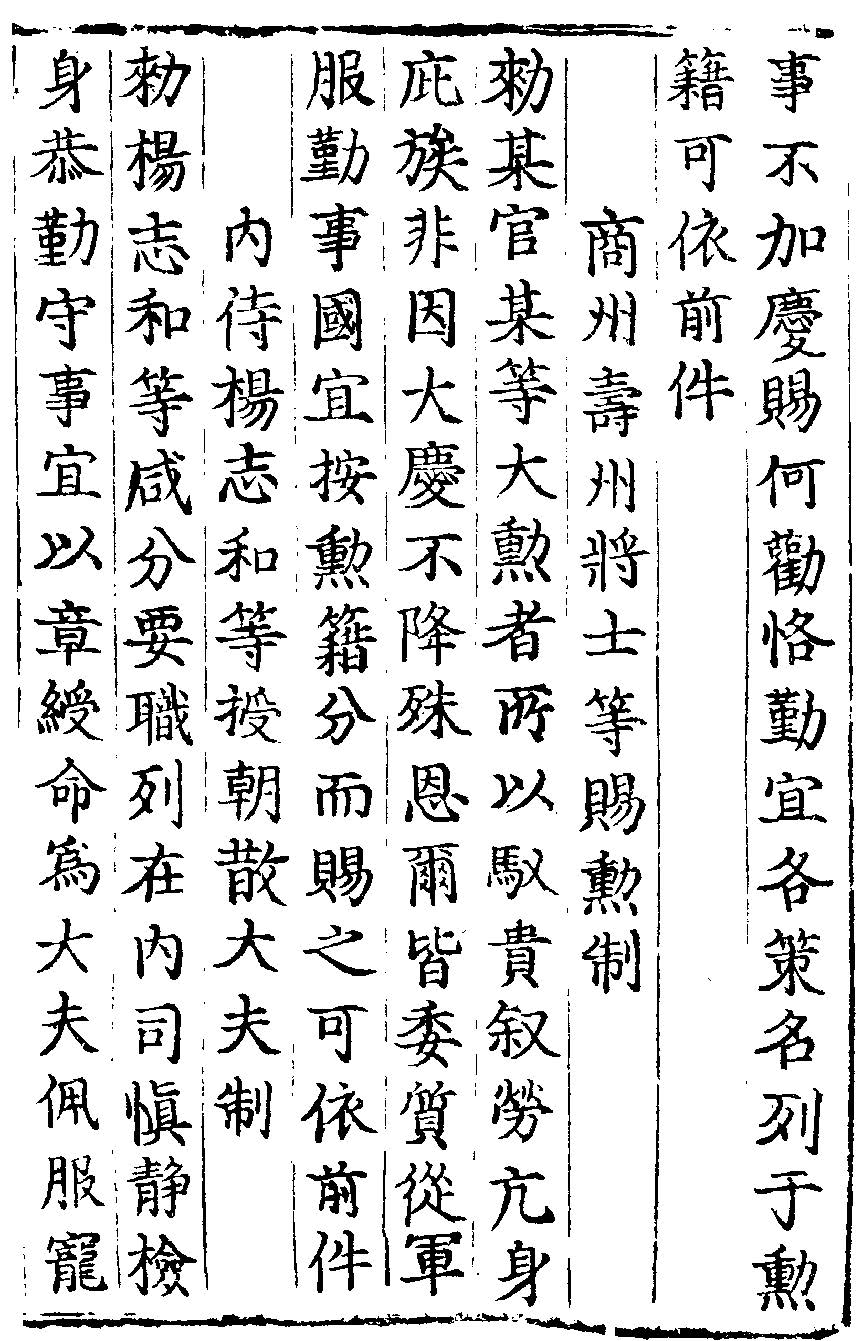 事不加慶賜何勸恪勤宜各策名列于勲
籍可依前件
商州壽州將士等賜勲制
勑某官某等大勲者所以馭貴叙勞亢身
庇族非因大慶不降殊恩爾皆委質從軍
服勤事國宜按勲籍分而賜之可依前件
内待楊志和等授朝散大夫制
勑楊志和等咸分要職列在内司慎静檢
身恭勤守事宜以章綬命爲大夫佩服寵